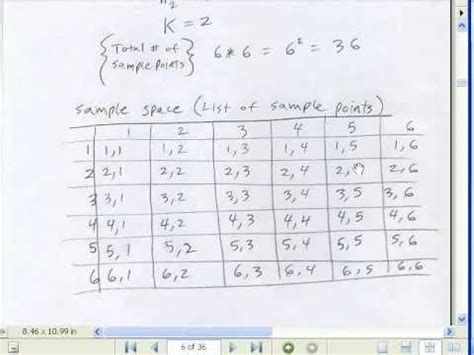 K = 2
{Total # of sample points} 6 * 6 = 6² = 36
Sample space (List of sample points)
1 2 3 4 5 6
1 1,1 1,2 1,3 1,4 1,5 1,6
2 2,1 2,2 2,3 2,4 2, 2,6
3 3,1 3,2 3,3 3,4 3,5 3,6
4 4,1 4,2 4,3 4,4 4,5 4,6
5 5,1 5,2 5,3 5,4 5,5 5,6
6 6,1 6,2 6,3 6,4 6,5 6,6
8.46 x 10.99 in
6 of 36